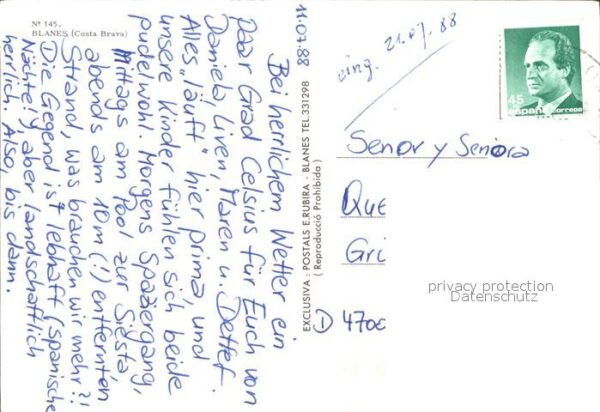 Nº 145.
BLANES (Costa Brava)
11.07.88
Bei herrlichem Wetter ein
paar Grad Celsius für Euch von
Daniela, Liven, Maren u. Detlef.
Alles „läuft" hier prima, und
unsere Kinder fühlen sich beide
pudelwohl. Morgens Spaziergang,
Mittags am Pool zur Siesta,
abends am 10m (!) entfernten
Strand, was brauchen wir mehr?!
Die Gegend ist lebhaft (spanische
Nächte), aber landschaftlich
herrlich. Also, bis dann.
EXCLUSIVA: POSTALS E.RUBIRA - BLANES TEL.331298
( Reproducció Prohibida )
eing. 21.07.88
45
españa correos
Senor y Seniora
Que
Gri
D 470
privacy protection
Datenschutz